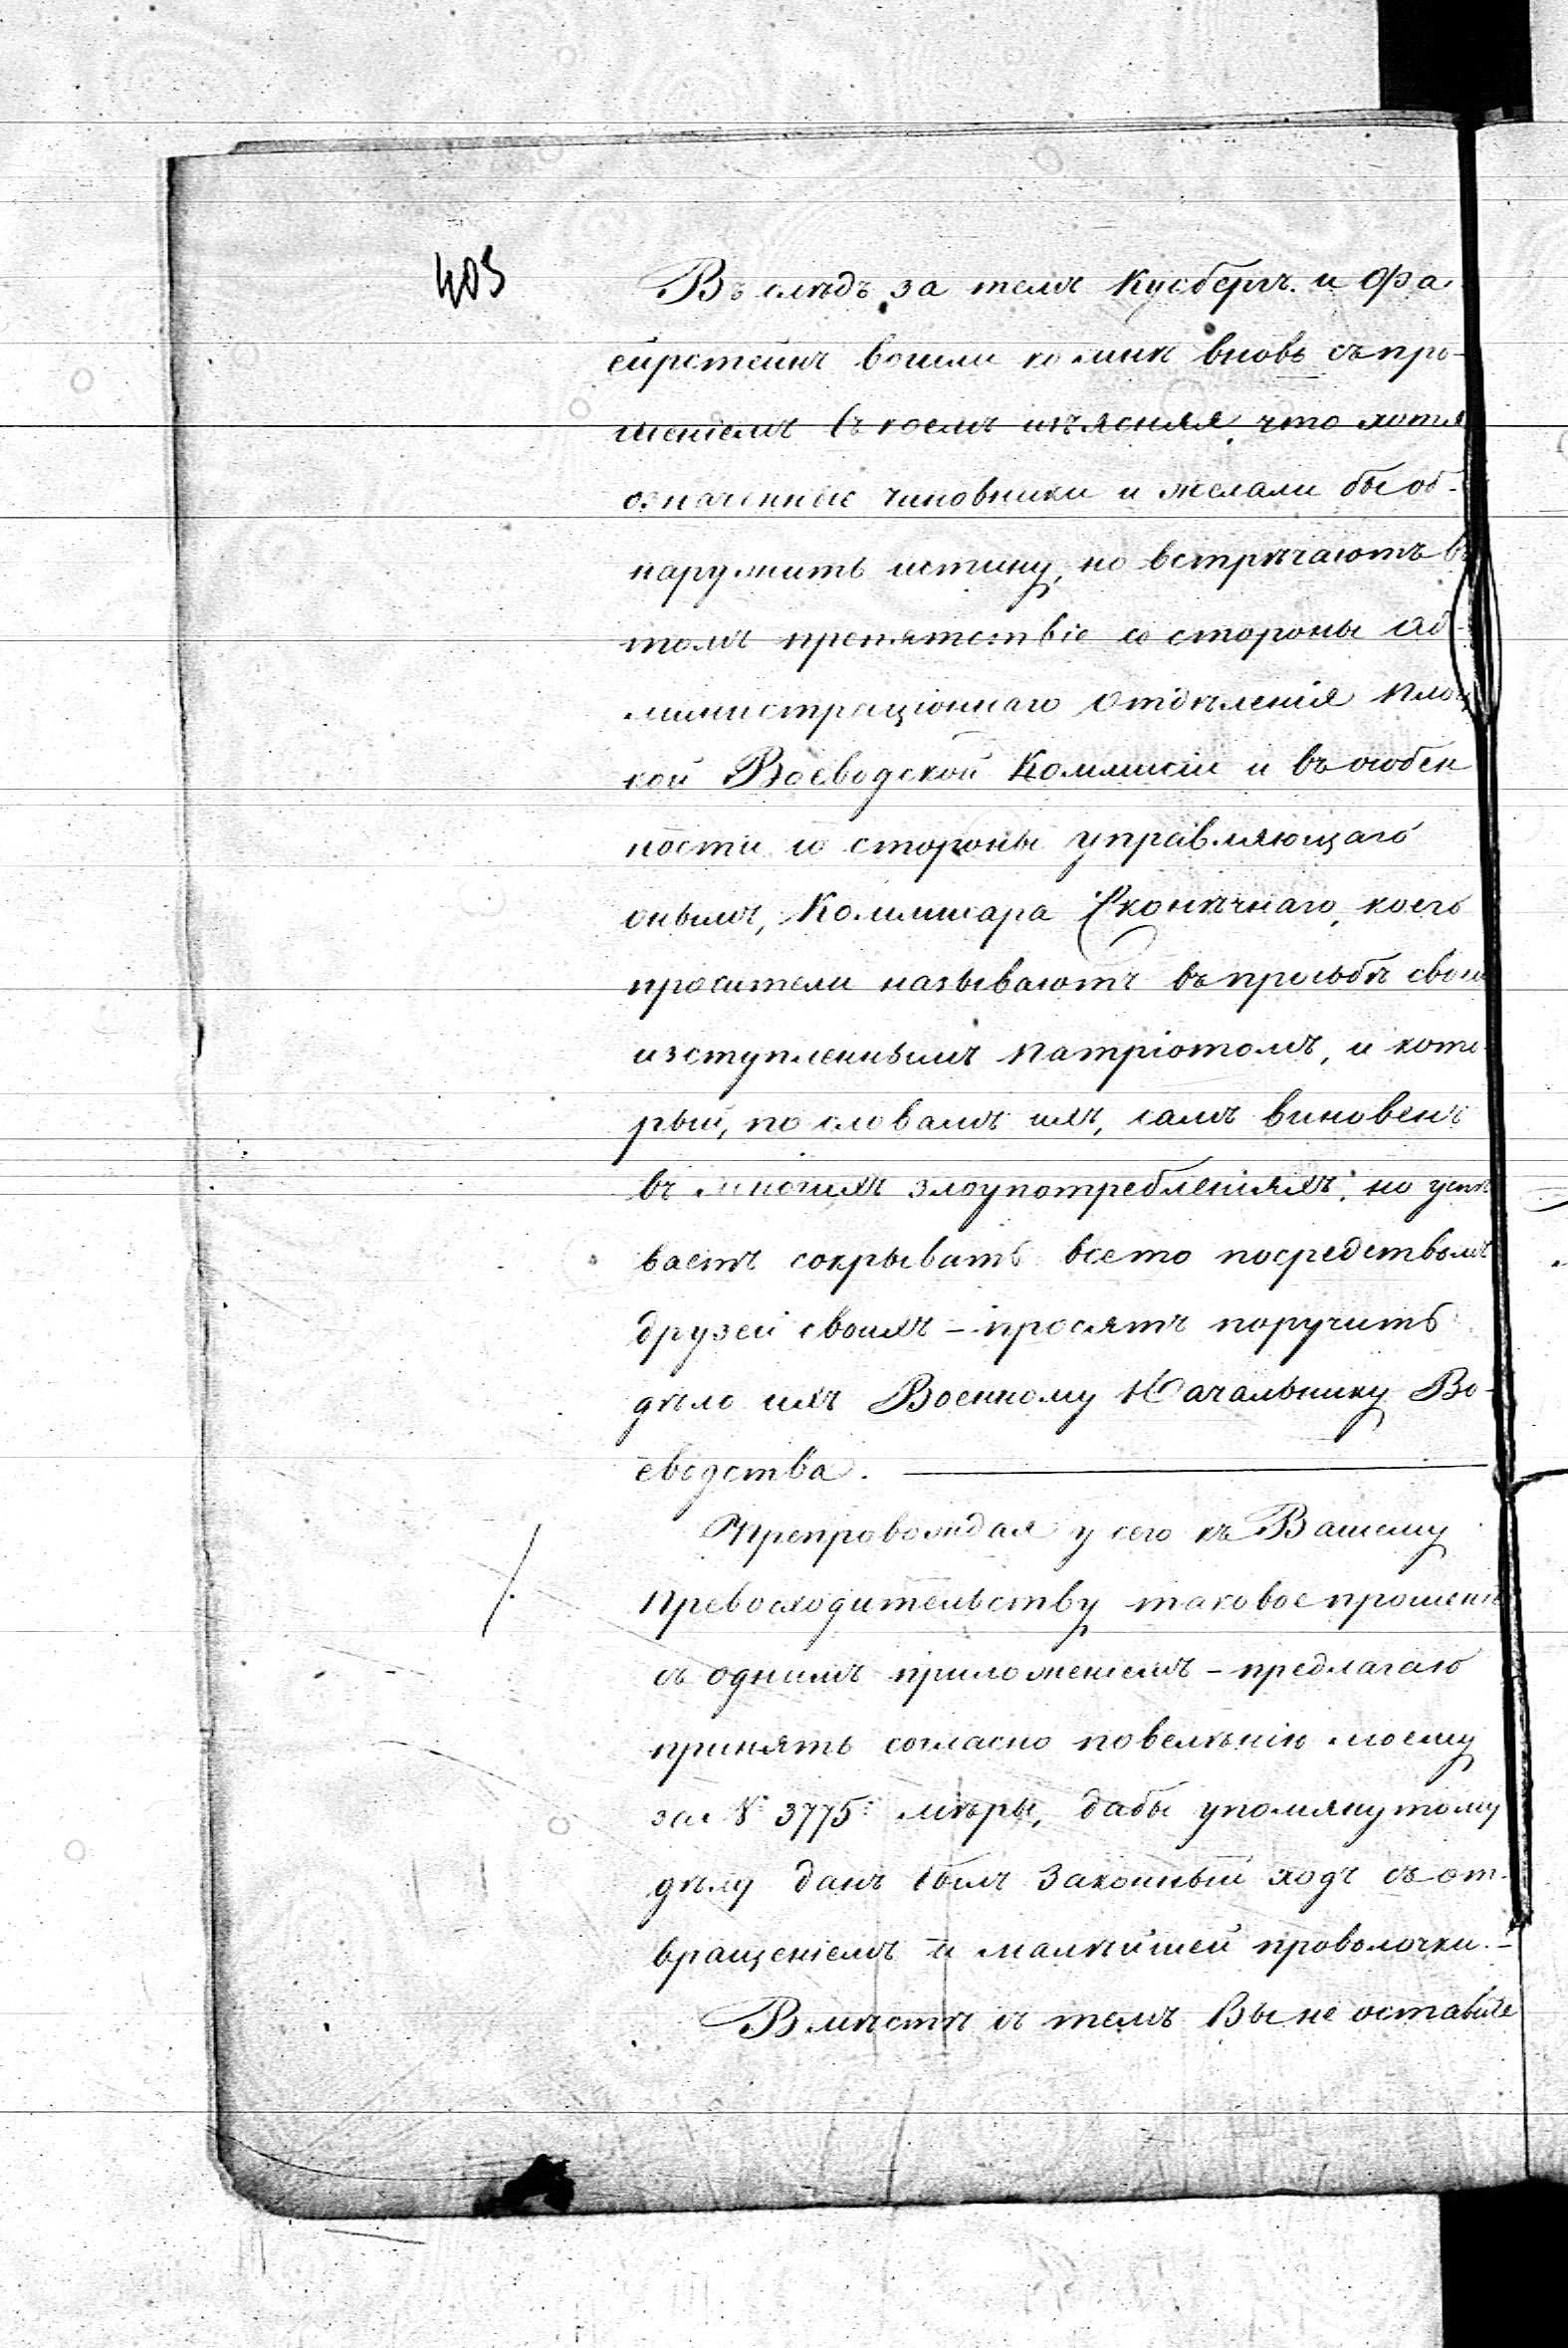 403
Въ слѣдъ за темъ Кусбергъ и Фа-
ейрстейнъ вошли ко мнѣ вновь съ про-
шеніемъ въ коемъ изъясняя, что хотя
означенные чиновники и желали бы об-
наружить истину, но встрѣчаютъ въ
томъ препятствіе со стороны Ад-
министраціоннаго Отдѣленія Плоц
кой Воеводской Коммисіи и въ особен
ности со стороны управляющаго
онымъ, Коммисара Сконѣчнаго, коего
просители называютъ въ просьбѣ своей
изступленнымъ патріотомъ, и кото-
рый, по словамъ ихъ, самъ виновенъ
въ многихъ злоупотребленіяхъ; но успѣ
ваетъ сокрывать все то посредствомъ
друзей своихъ – просятъ поручить
дѣло ихъ Военному Начальнику Во-
еводства.
Препровождая у сего къ Вашему
Превосходительству таковое прошеніе
съ однимъ приложеніемъ – предлагаю
принять согласно повелѣнію моему
за № 3775: мѣры, дабы упомянутому
дѣлу данъ былъ Законный ходъ съ от-
вращеніемъ и малѣйшей проволочки. –
Вмѣстѣ съ темъ Вы не оставите